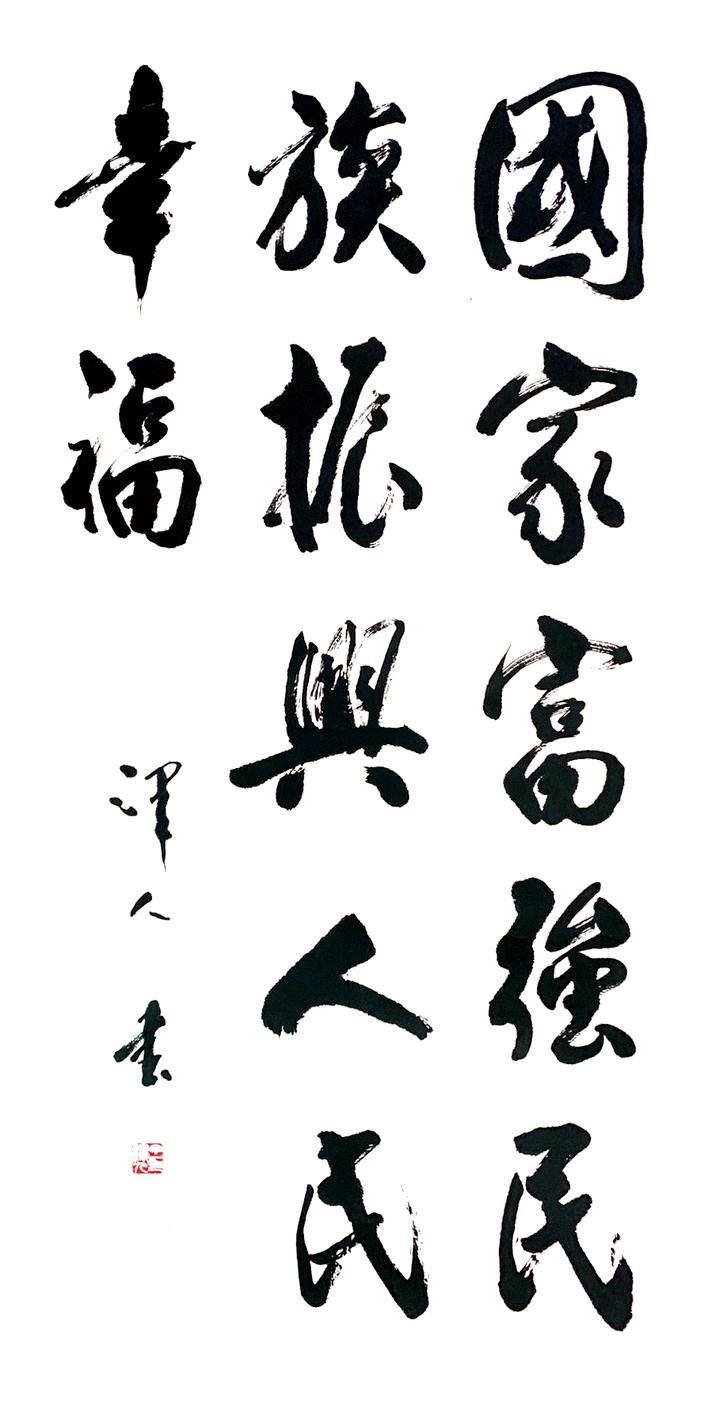 國家富強民
族振興人民
幸福
澤人書